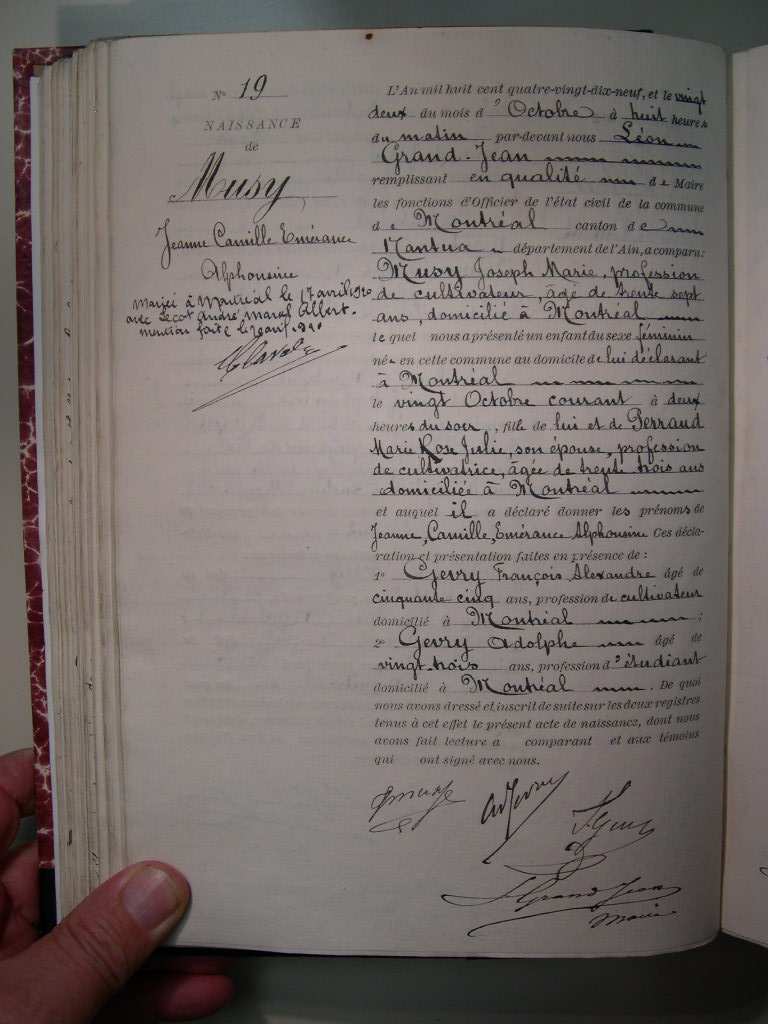 Nº 19
NAISSANCE
de
Musy
Jeanne Camille Emérance
Alphonsine
Mariée à Montréal le 17 avril 1920
avec Lecot André Marcel Albert.
mention faite le 20 avril 1920
L'An mil huit cent quatre-vingt-dix-neuf, et le vingt
deux du mois d'Octobre à huit heures
du matin par-devant nous Léon
Grand-Jean
remplissant en qualité de Maire
les fonctions d'Officier de l'état civil de la commune
de Montréal canton de
Nantua département de l'Ain, a comparu:
Musy Joseph Marie, profession
de cultivateur, âgé de trente sept
ans, domicilié à Montréal
lequel nous a présenté un enfant du sexe féminin
née en cette commune au domicile de lui déclarant
à Montréal
le vingt Octobre courant à deux
heures du soir, fille de lui et de Perraud
Marie Rose Julie, son épouse, profession
de cultivatrice, âgée de trente trois ans
domiciliée à Montréal
et auquel il a déclaré donner les prénoms de
Jeanne, Camille, Emérance Alphonsine Ces décla-
ration et présentation faites en présence de :
1º Gevry François Alexandre âgé de
cinquante cinq ans, profession de cultivateur
domicilié à Montréal ;
2º Gevry Adolphe âgé de
vingt-trois ans, profession d'étudiant
domicilié à Montréal. De quoi
nous avons dressé et inscrit de suite sur les doux registres
tenus à cet effet le présent acte de naissance, dont nous
avons fait lecture a comparant et aux témoins
qui ont signé avec nous.
JMusy AdGevry FGevry
LGrand Jean
Maire